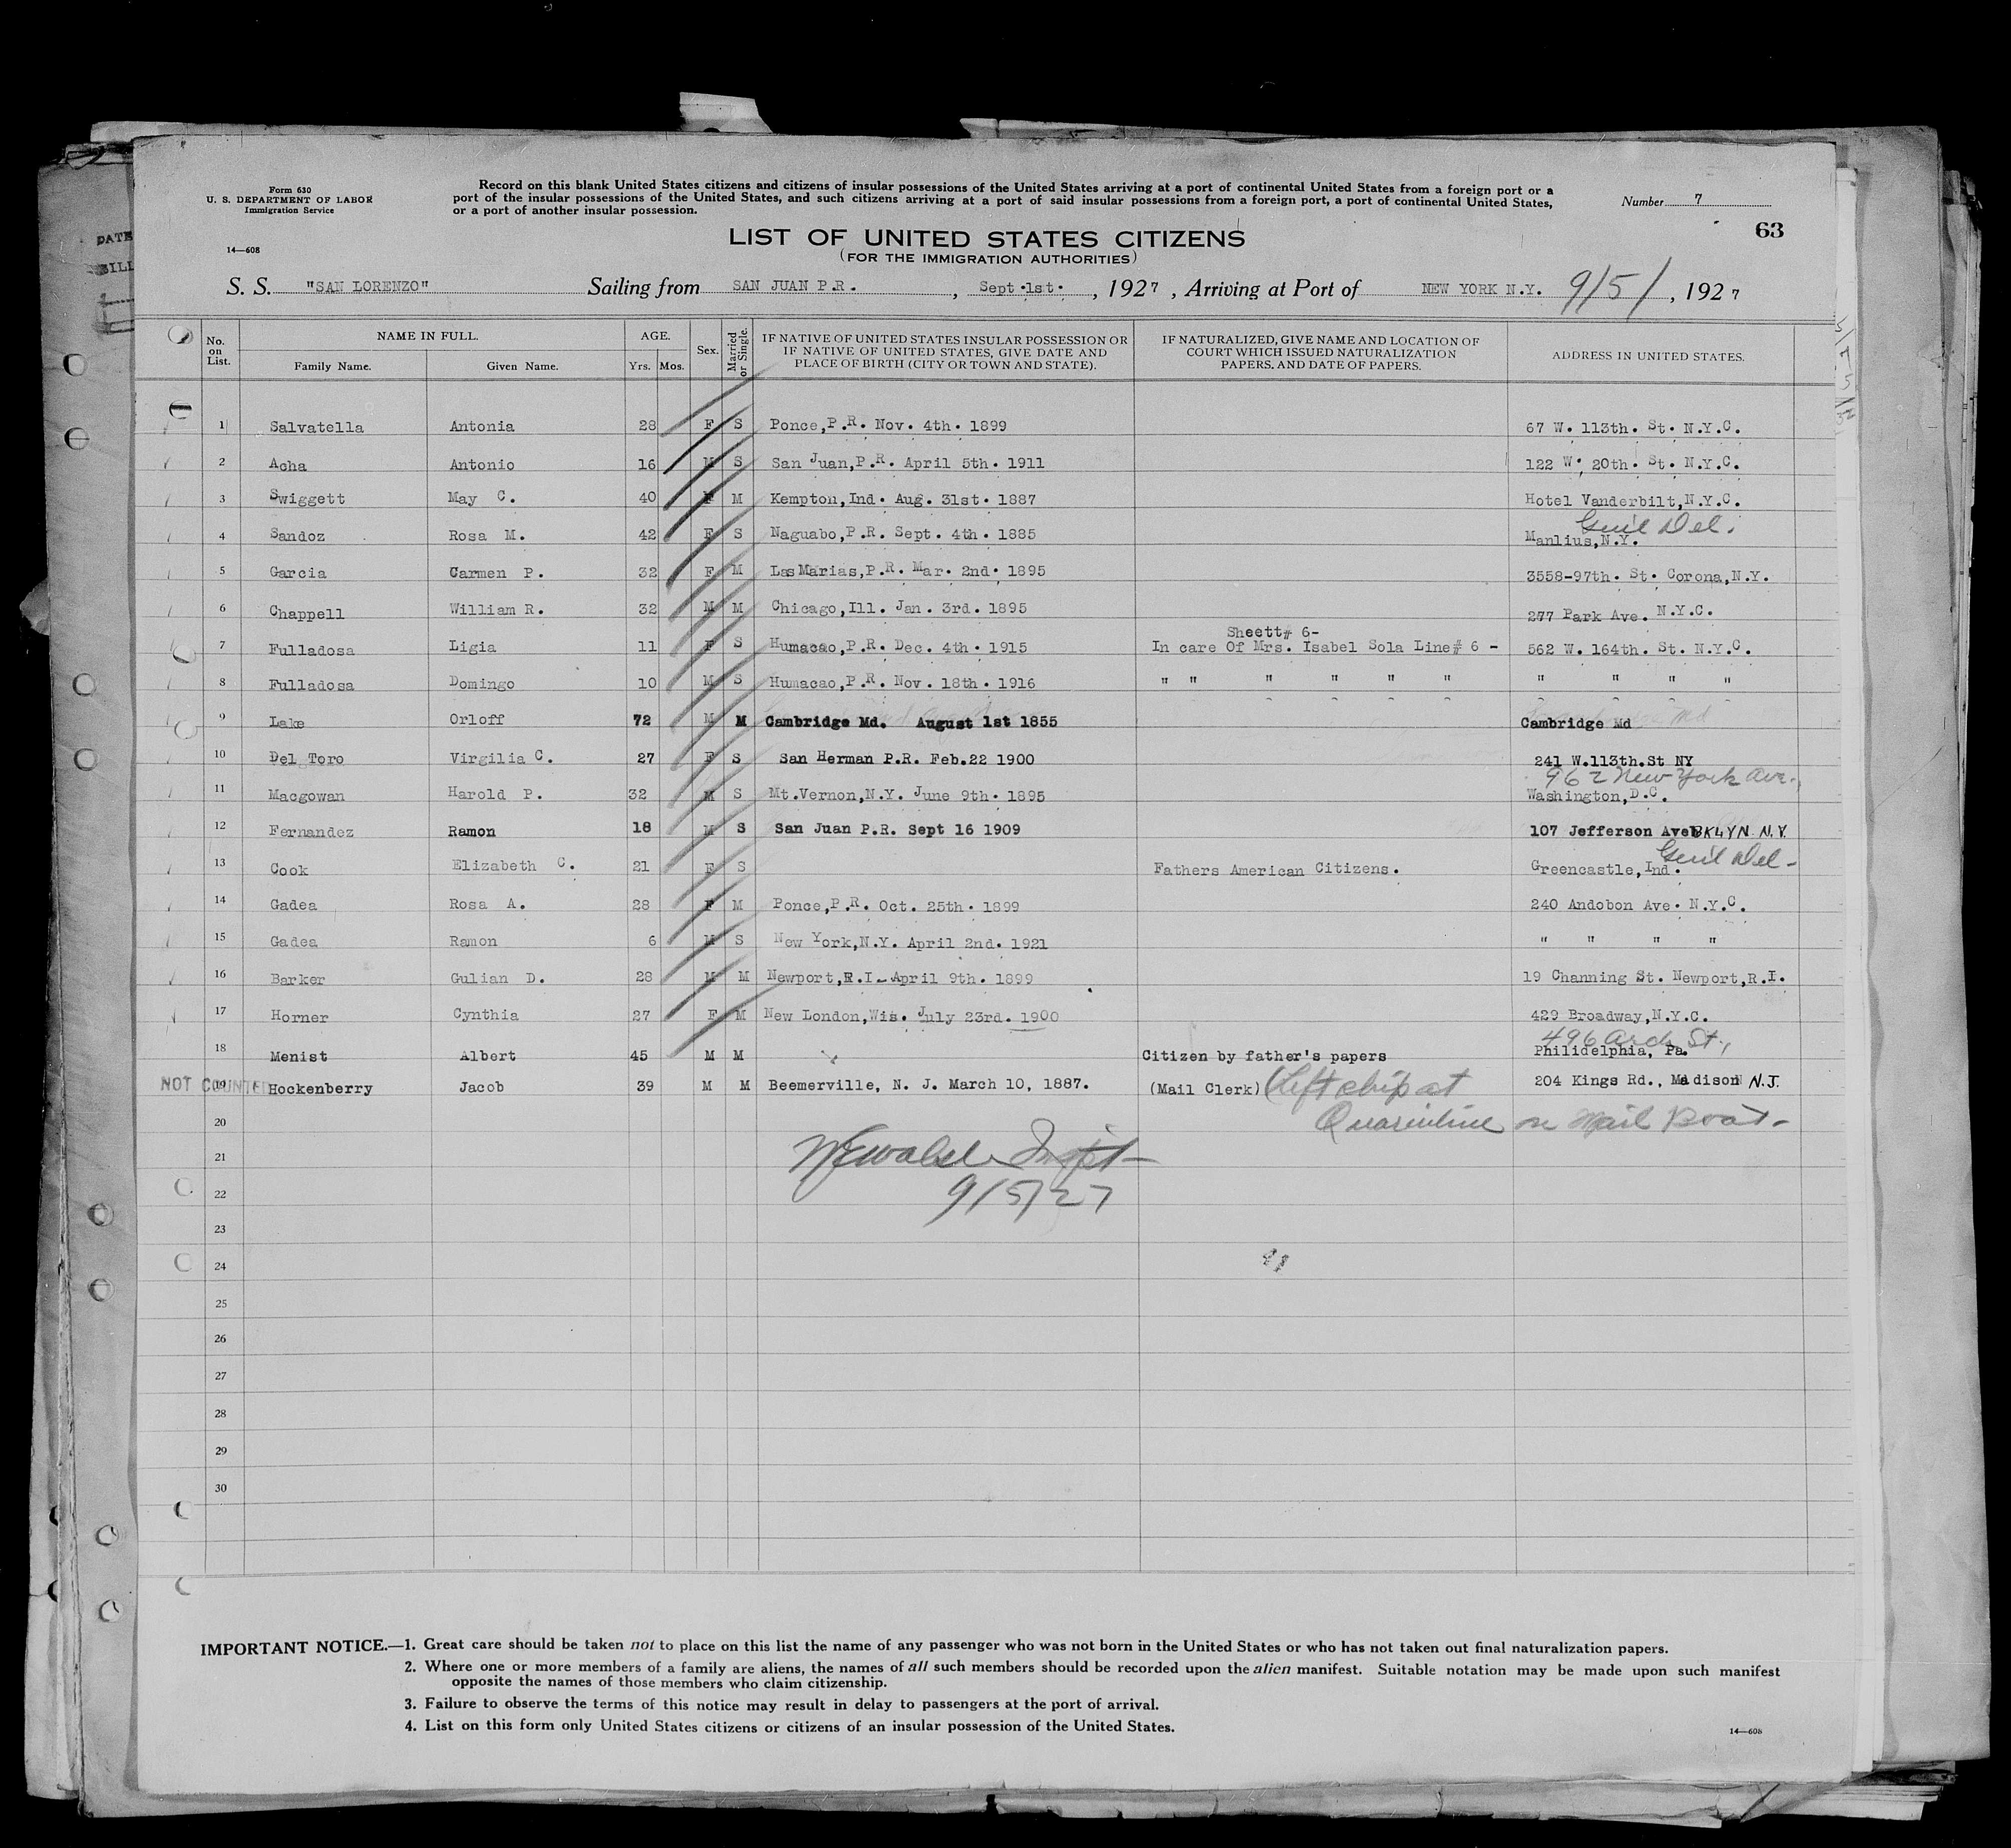 Form 630
U. S. DEPARTMENT OF LABOR
Immigration Service
14—608
Record on this blank United States citizens and citizens of insular possessions of the United States arriving at a port of continental United States from a foreign port or a
port of the insular possessions of the United States, and such citizens arriving at a port of said insular possessions from a foreign port, a port of continental United States,
or a port of another insular possession.
Number 7
63
LIST OF UNITED STATES CITIZENS
(FOR THE IMMIGRATION AUTHORITIES)
S. S. "SAN LORENZO" Sailing from SAN JUAN P.R. , Sept.1st. , 1927 , Arriving at Port of NEW YORK N.Y. 9/5/ , 1927
No. on List. NAME IN FULL. Family Name. Given Name. AGE. Yrs. Mos. Sex. Married or Single. IF NATIVE OF UNITED STATES INSULAR POSSESSION OR IF NATIVE OF UNITED STATES, GIVE DATE AND PLACE OF BIRTH (CITY OR TOWN AND STATE). IF NATURALIZED, GIVE NAME AND LOCATION OF COURT WHICH ISSUED NATURALIZATION PAPERS, AND DATE OF PAPERS. ADDRESS IN UNITED STATES.
1 Salvatella Antonia 28 F S Ponce,P.R. Nov. 4th. 1899 67 W. 113th. St. N.Y.C.
2 Acha Antonio 16 M S San Juan,P.R. April 5th. 1911 122 W. 20th. St. N.Y.C.
3 Swiggett May C. 40 F M Kempton,Ind. Aug. 31st. 1887 Hotel Vanderbilt,N.Y.C.
4 Sandoz Rosa M. 42 F S Naguabo,P.R. Sept. 4th. 1885 Manlius,N.Y. Gen'l Del.
5 Garcia Carmen P. 32 F M Las Marias,P.R. Mar. 2nd. 1895 3558-97th. St. Corona,N.Y.
6 Chappell William R. 32 M M Chicago,Ill. Jan. 3rd. 1895 277 Park Ave. N.Y.C.
Sheett# 6-
7 Fulladosa Ligia 11 F S Humacao,P.R. Dec. 4th. 1915 In care Of Mrs. Isabel Sola Line# 6 - 562 W. 164th. St. N.Y.C.
8 Fulladosa Domingo 10 M S Humacao,P.R. Nov. 18th. 1916 " " " " " " " " " "
9 Lake Orloff 72 M M Cambridge Md. August 1st 1855 Cambridge Md
10 Del Toro Virgilia C. 27 F S San Herman P.R. Feb.22 1900 241 W.113th.St NY
962 New York Ave.,
11 Macgowan Harold P. 32 M S Mt.Vernon,N.Y. June 9th. 1895 Washington,D.C.
12 Fernandez Ramon 18 M S San Juan P.R. Sept 16 1909 107 Jefferson Ave BKLYN N.Y.
Gen'l Del-
13 Cook Elizabeth C. 21 F S Fathers American Citizens. Greencastle,Ind.
14 Gadea Rosa A. 28 F M Ponce,P.R. Oct. 25th. 1899 240 Andobon Ave. N.Y.C.
15 Gadea Ramon 6 M S New York,N.Y. April 2nd. 1921 " " " "
16 Barker Gulian D. 28 M M Newport,R.I- April 9th. 1899 19 Channing St. Newport,R.I.
17 Horner Cynthia 27 F M New London,Wis. July 23rd. 1900 429 Broadway,N.Y.C.
496 Arch St,
18 Menist Albert 45 M M Citizen by father's papers Philidelphia, Pa.
NOT COUNTED 19 Hockenberry Jacob 39 M M Beemerville, N. J. March 10, 1887. (Mail Clerk) (Left ship at 204 Kings Rd., Madison N.J.
20 Quarintine on Mail Boat-
21
9/5/27
22
23
24
25
26
27
28
29
30
IMPORTANT NOTICE.—1. Great care should be taken not to place on this list the name of any passenger who was not born in the United States or who has not taken out final naturalization papers.
2. Where one or more members of a family are aliens, the names of all such members should be recorded upon the alien manifest. Suitable notation may be made upon such manifest
opposite the names of those members who claim citizenship.
3. Failure to observe the terms of this notice may result in delay to passengers at the port of arrival.
4. List on this form only United States citizens or citizens of an insular possession of the United States.
14—608